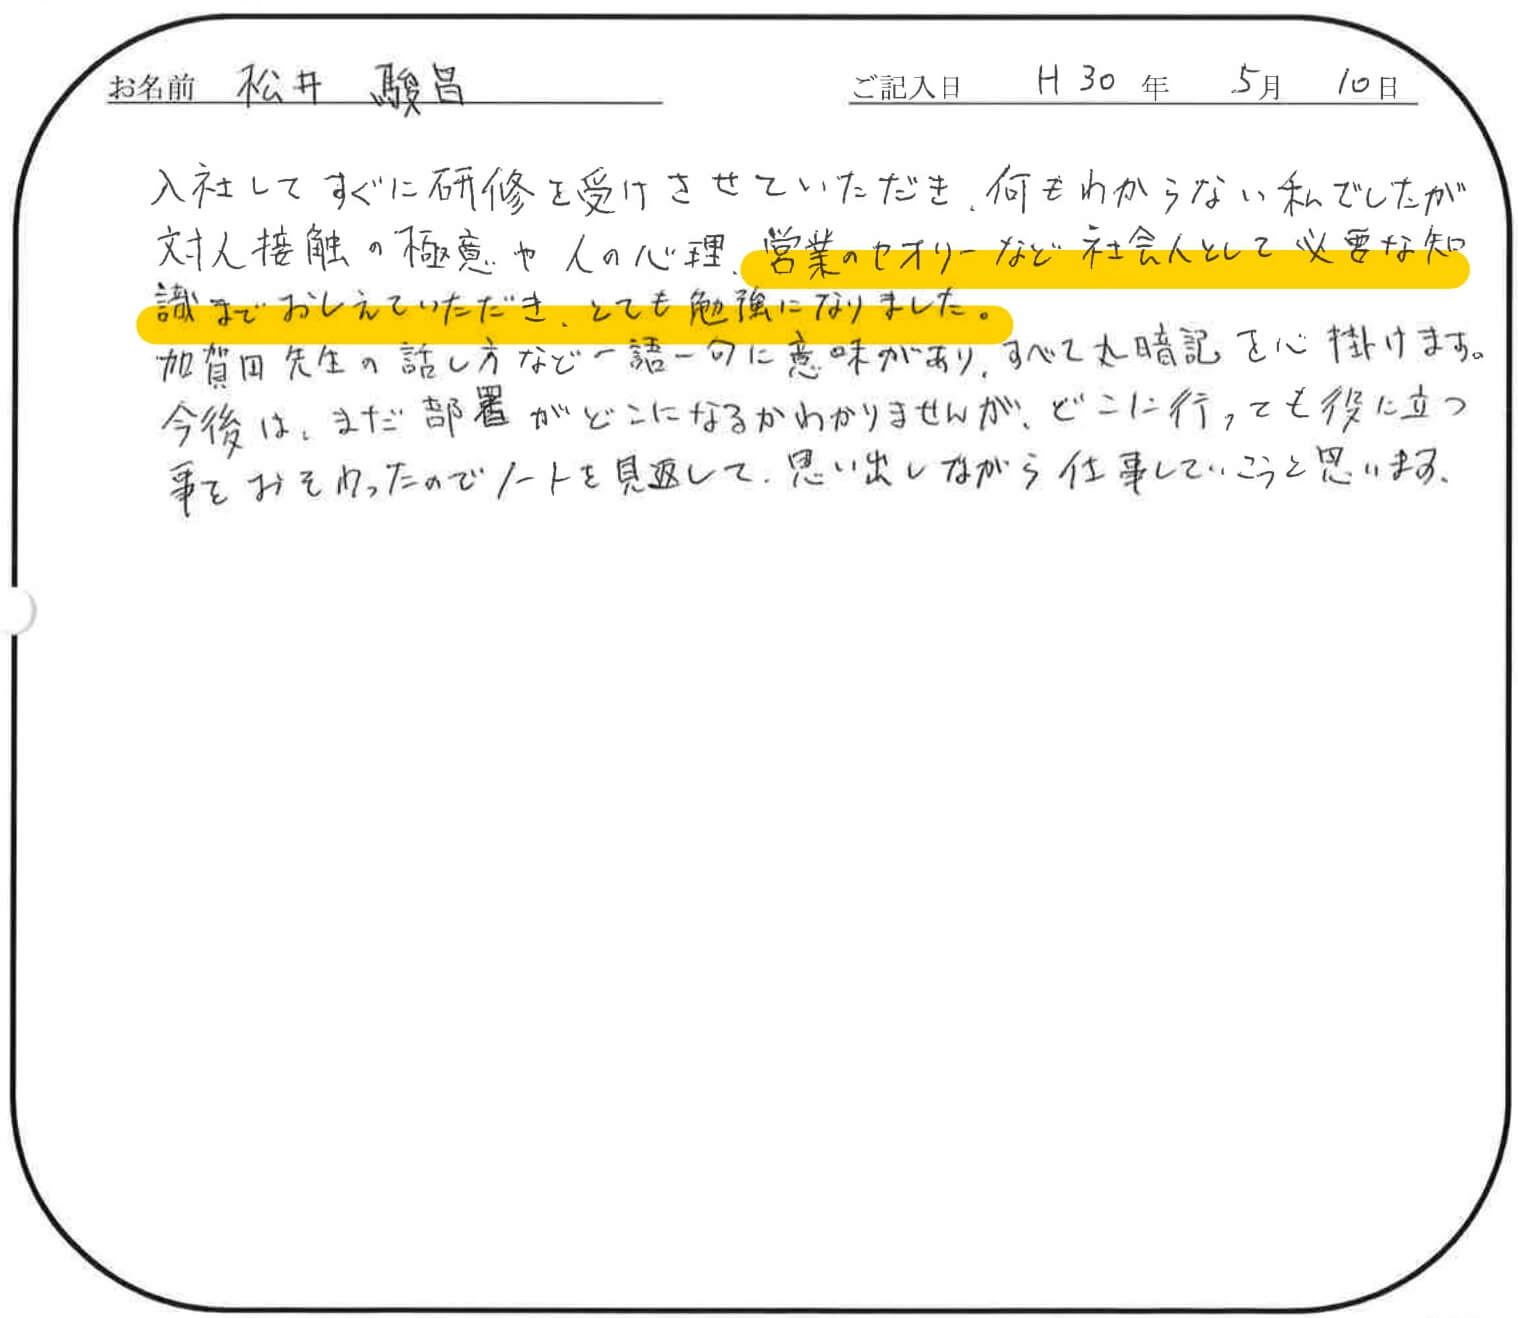 お名前 松井 駿昌 ご記入日 H30年 5月 10日
入社してすぐに研修を受けさせていただき、何もわからない私でしたが
対人接触の極意や人の心理、営業のセオリーなど社会人として必要な知
識までおしえていただき、とても勉強になりました。
加賀田先生の話し方など一語一句に意味があり、すべて丸暗記を心掛けます。
今後は、まだ部署がどこになるかわかりませんが、どこに行っても役に立つ
事をおそわったのでノートを見返して、思い出しながら仕事していこうと思います。